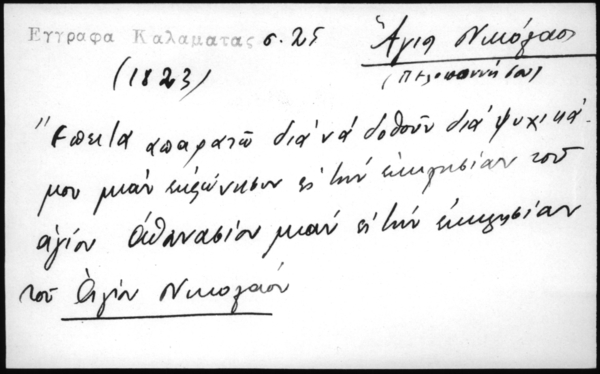 Εγγραφα Καλαματας σ. 25 Άγιος Νικόλαος
(1823) (Πελοποννήσου)
"Επειτα διά νά δοθοῦν διά ψυχικά
μου μιάν εἰς τήν ἐκκλησίαν τοῦ
ἁγίου Ἀθανασίου μιάν εἰς τήν ἐκκλησίαν
τοῦ Ἁγίου Νικολάου